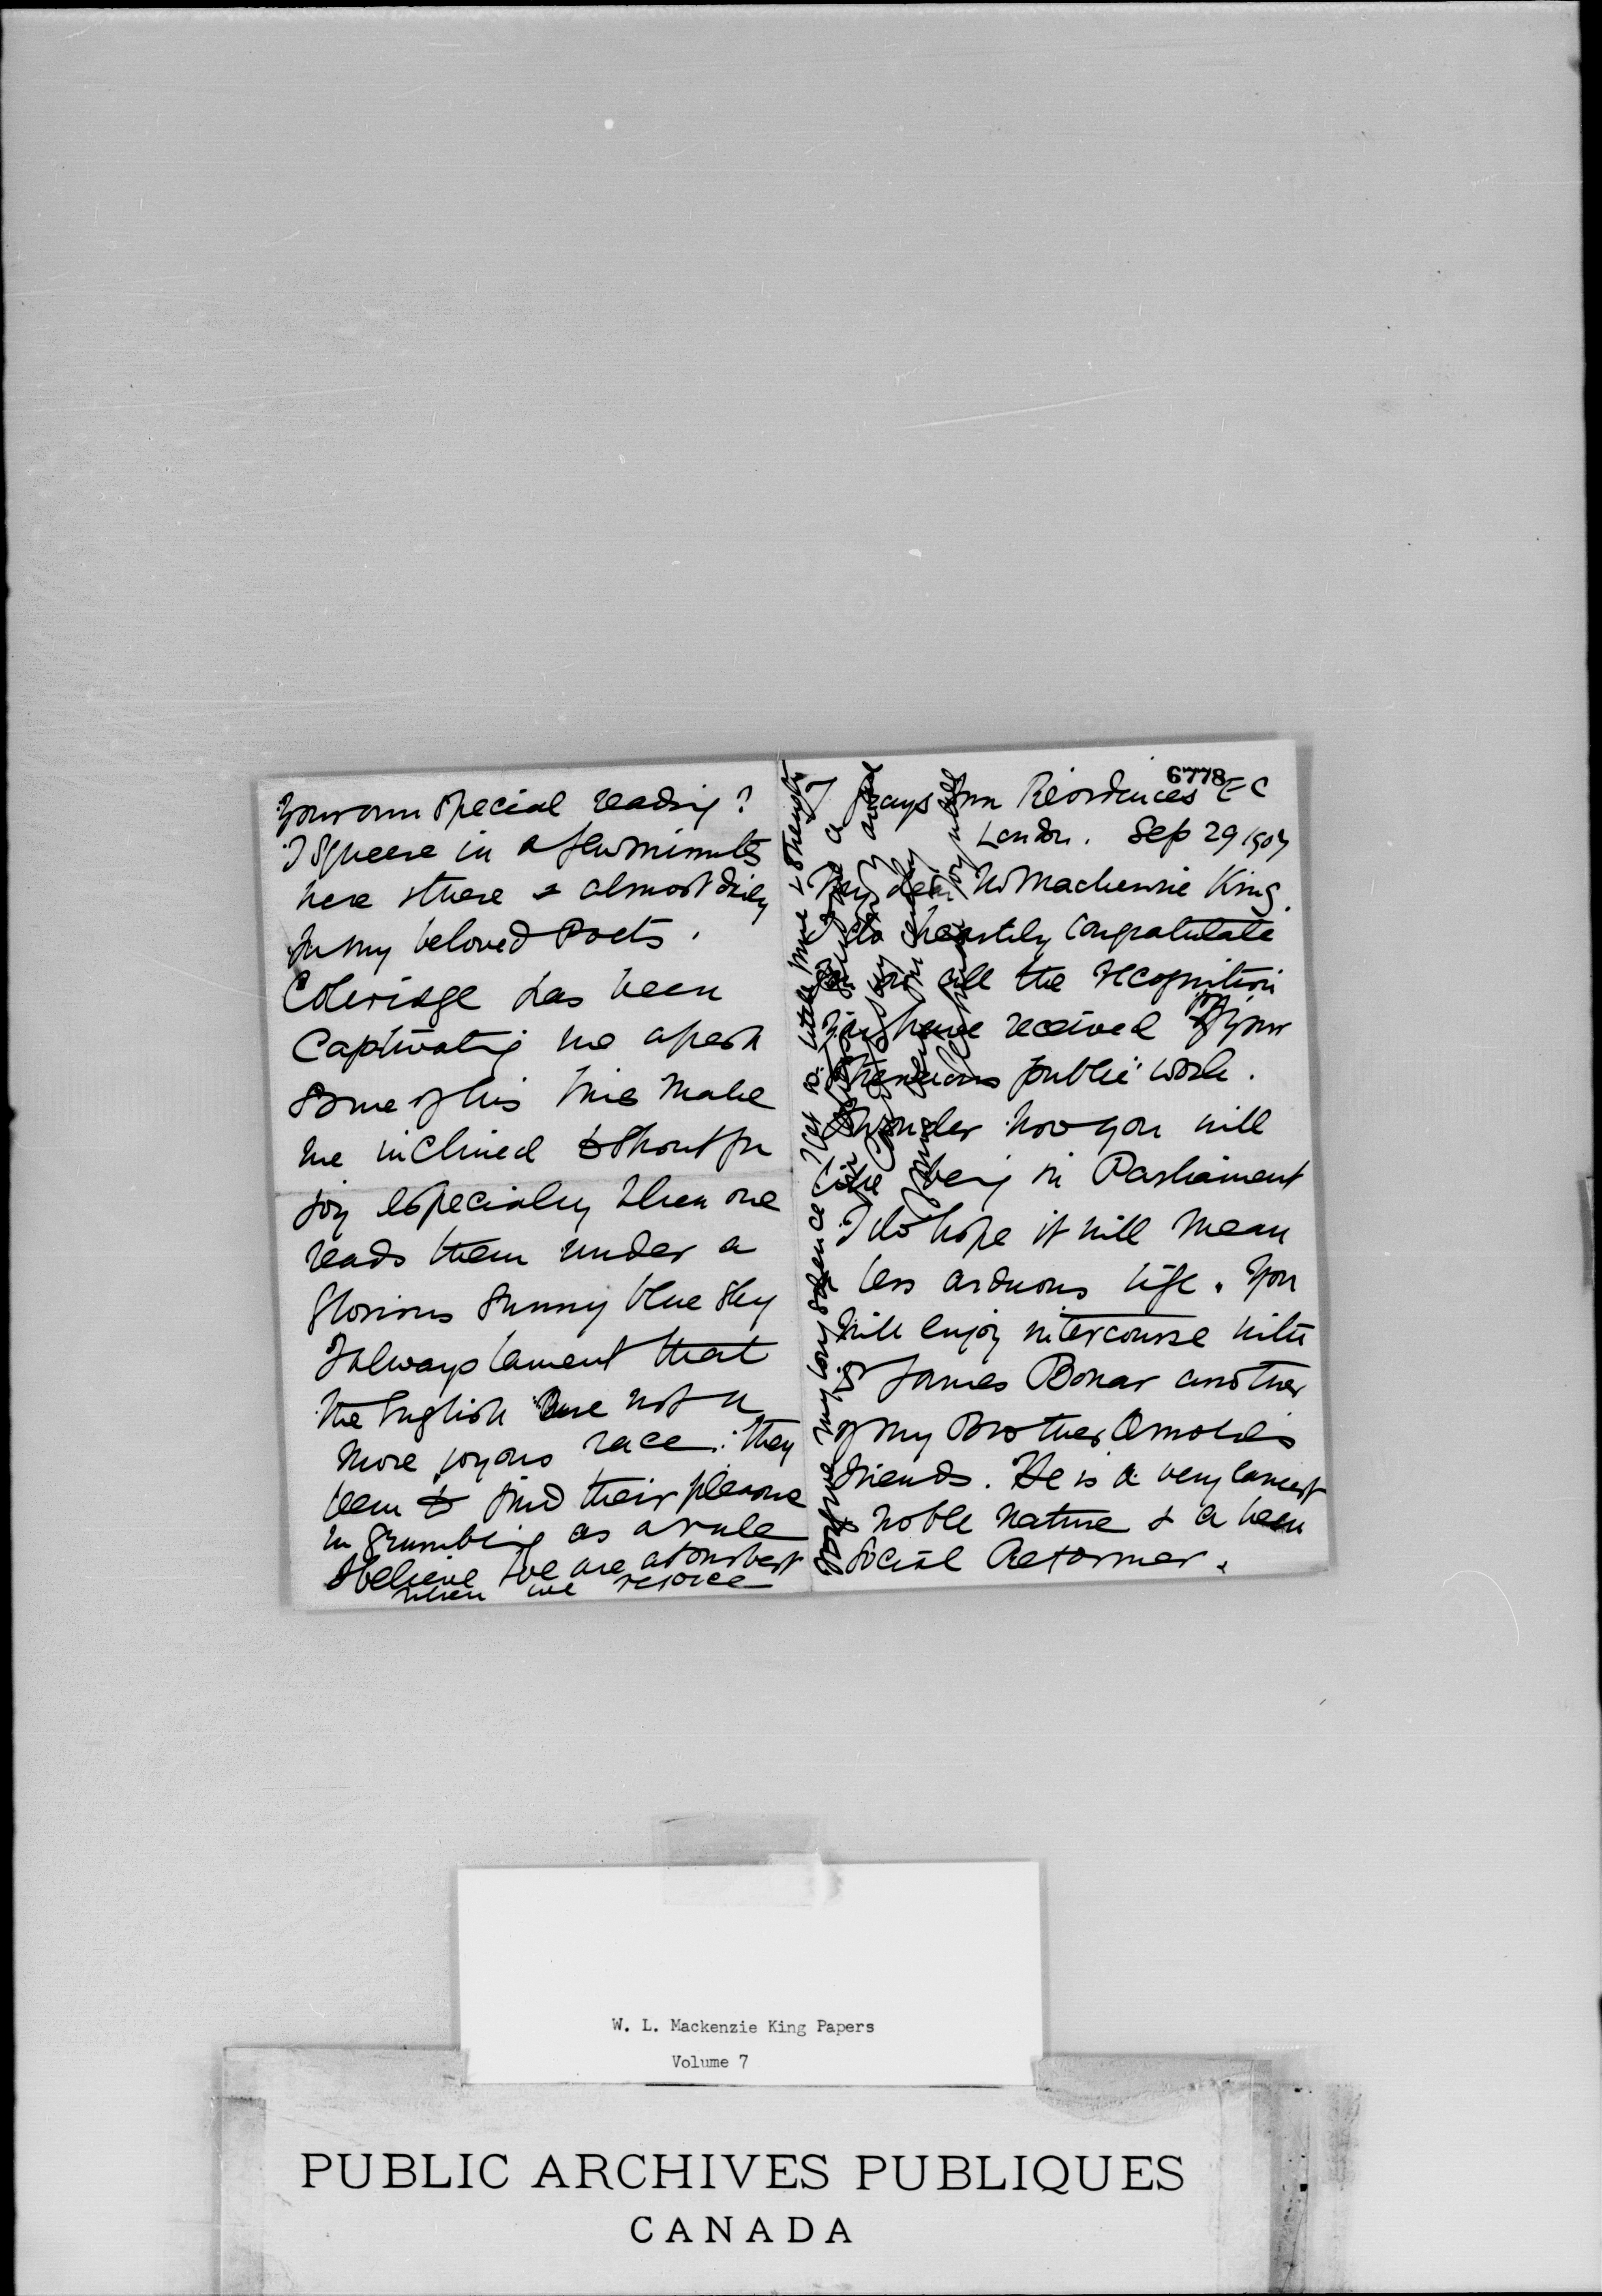 6778
Grays Inn Residences EC
London. Sep 29 1907
My dear Mr Mackenzie King.
I do heartily congratulate
you on all the recognition
you have received for your
strenuous public work.
I wonder how you will
like being in Parliament
I do hope it will mean
less arduous life. You
will enjoy intercourse with
James Bonar another
of my Brother Arnold's
friends. He is a very
noble nature & a keen
Social Reformer.
your own special reading?
I squeeze in a few minutes
here & there & almost daily
for my beloved Poets.
Coleridge has been
Captivating me afresh
Some of his lines make
me inclined to shout for
joy especially when one
reads them under a
glorious sunny blue sky
I always lament that
the English are not a
more joyous race: they
seem to find their pleasure
in grumbling as a rule
I believe we are at our best
when we rejoice
Forgive my long silence
little more & strength
W. L. Mackenzie King Papers
Volume 7
PUBLIC ARCHIVES PUBLIQUES
CANADA